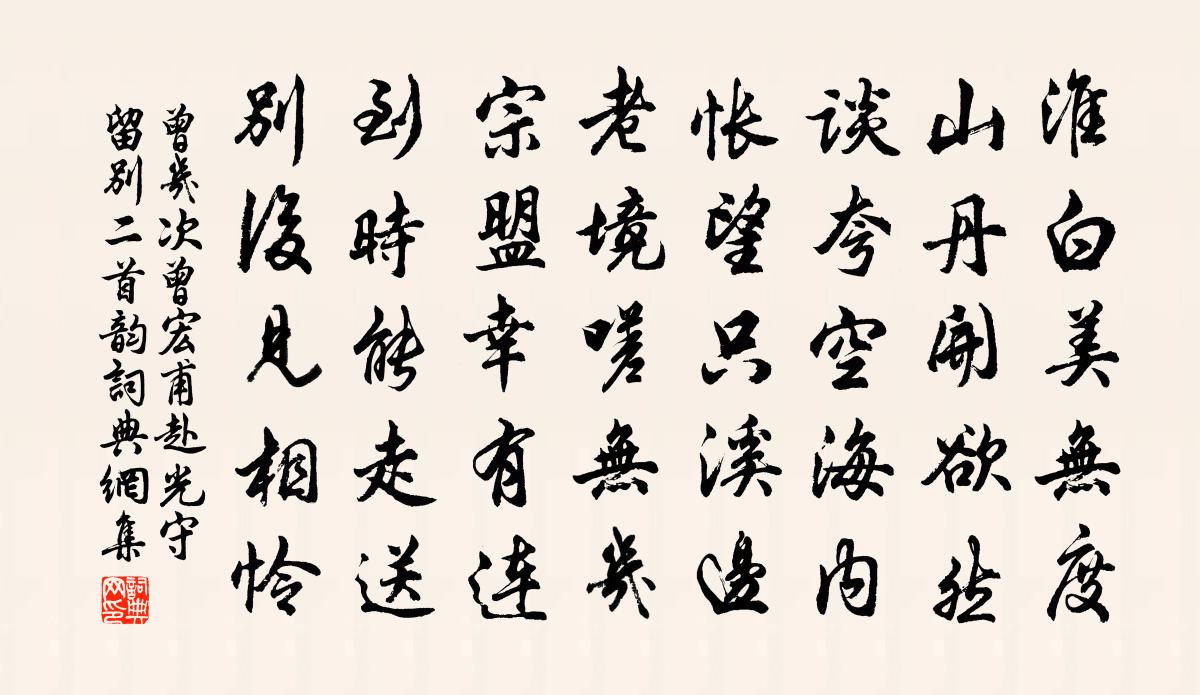 淮白美無度
山丹開欲然
談夸空海内
悵望只溪邊
老境嗟無幾
宗盟幸有連
到時能走送
別後見相憐
曾幾次曾宏甫赴光守
留別二首韵詞典網集
詞典网印